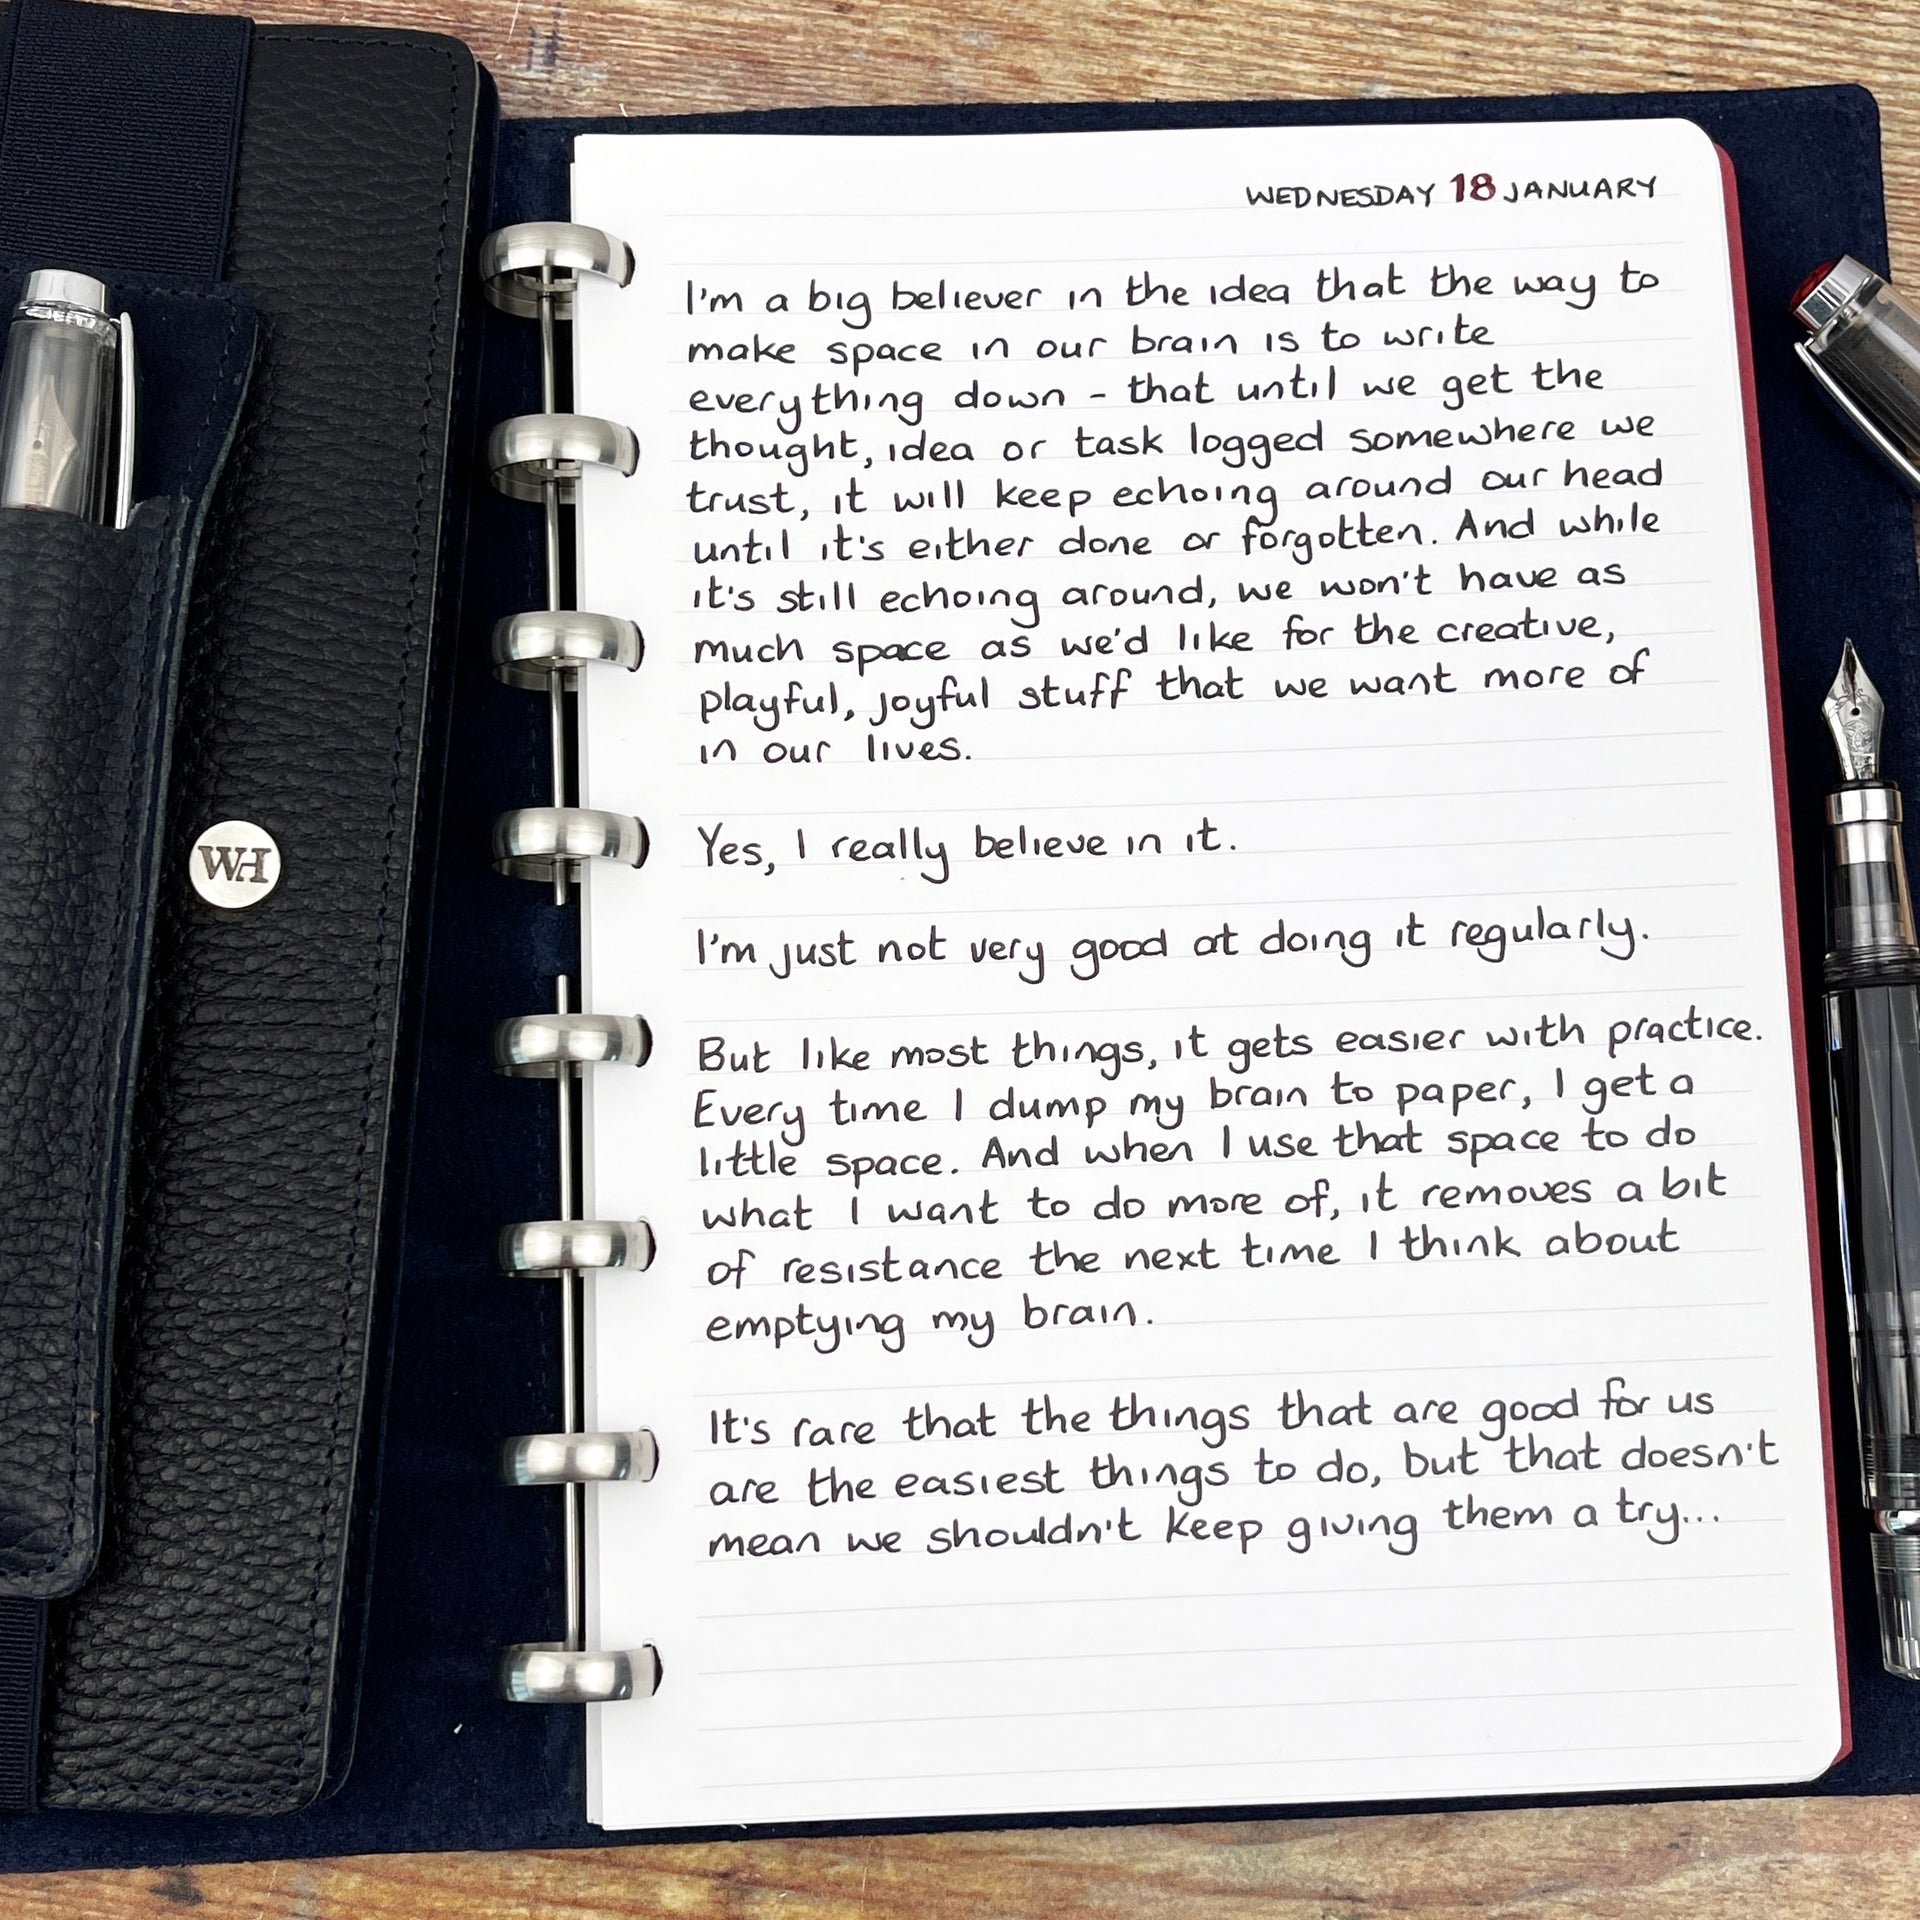 WEDNESDAY 18 JANUARY
I'm a big believer in the idea that the way to
make space in our brain is to write
everything down - that until we get the
thought, idea or task logged somewhere we
trust, it will keep echoing around our head
until it's either done or forgotten. And while
it's still echoing around, we won't have as
much space as we'd like for the creative,
playful, joyful stuff that we want more of
in our lives.
Yes, I really believe in it.
I'm just not very good at doing it regularly.
But like most things, it gets easier with practice.
Every time I dump my brain to paper, I get a
little space. And when I use that space to do
what I want to do more of, it removes a bit
of resistance the next time I think about
emptying my brain.
It's rare that the things that are good for us
are the easiest things to do, but that doesn't
mean we shouldn't keep giving them a try...
WH